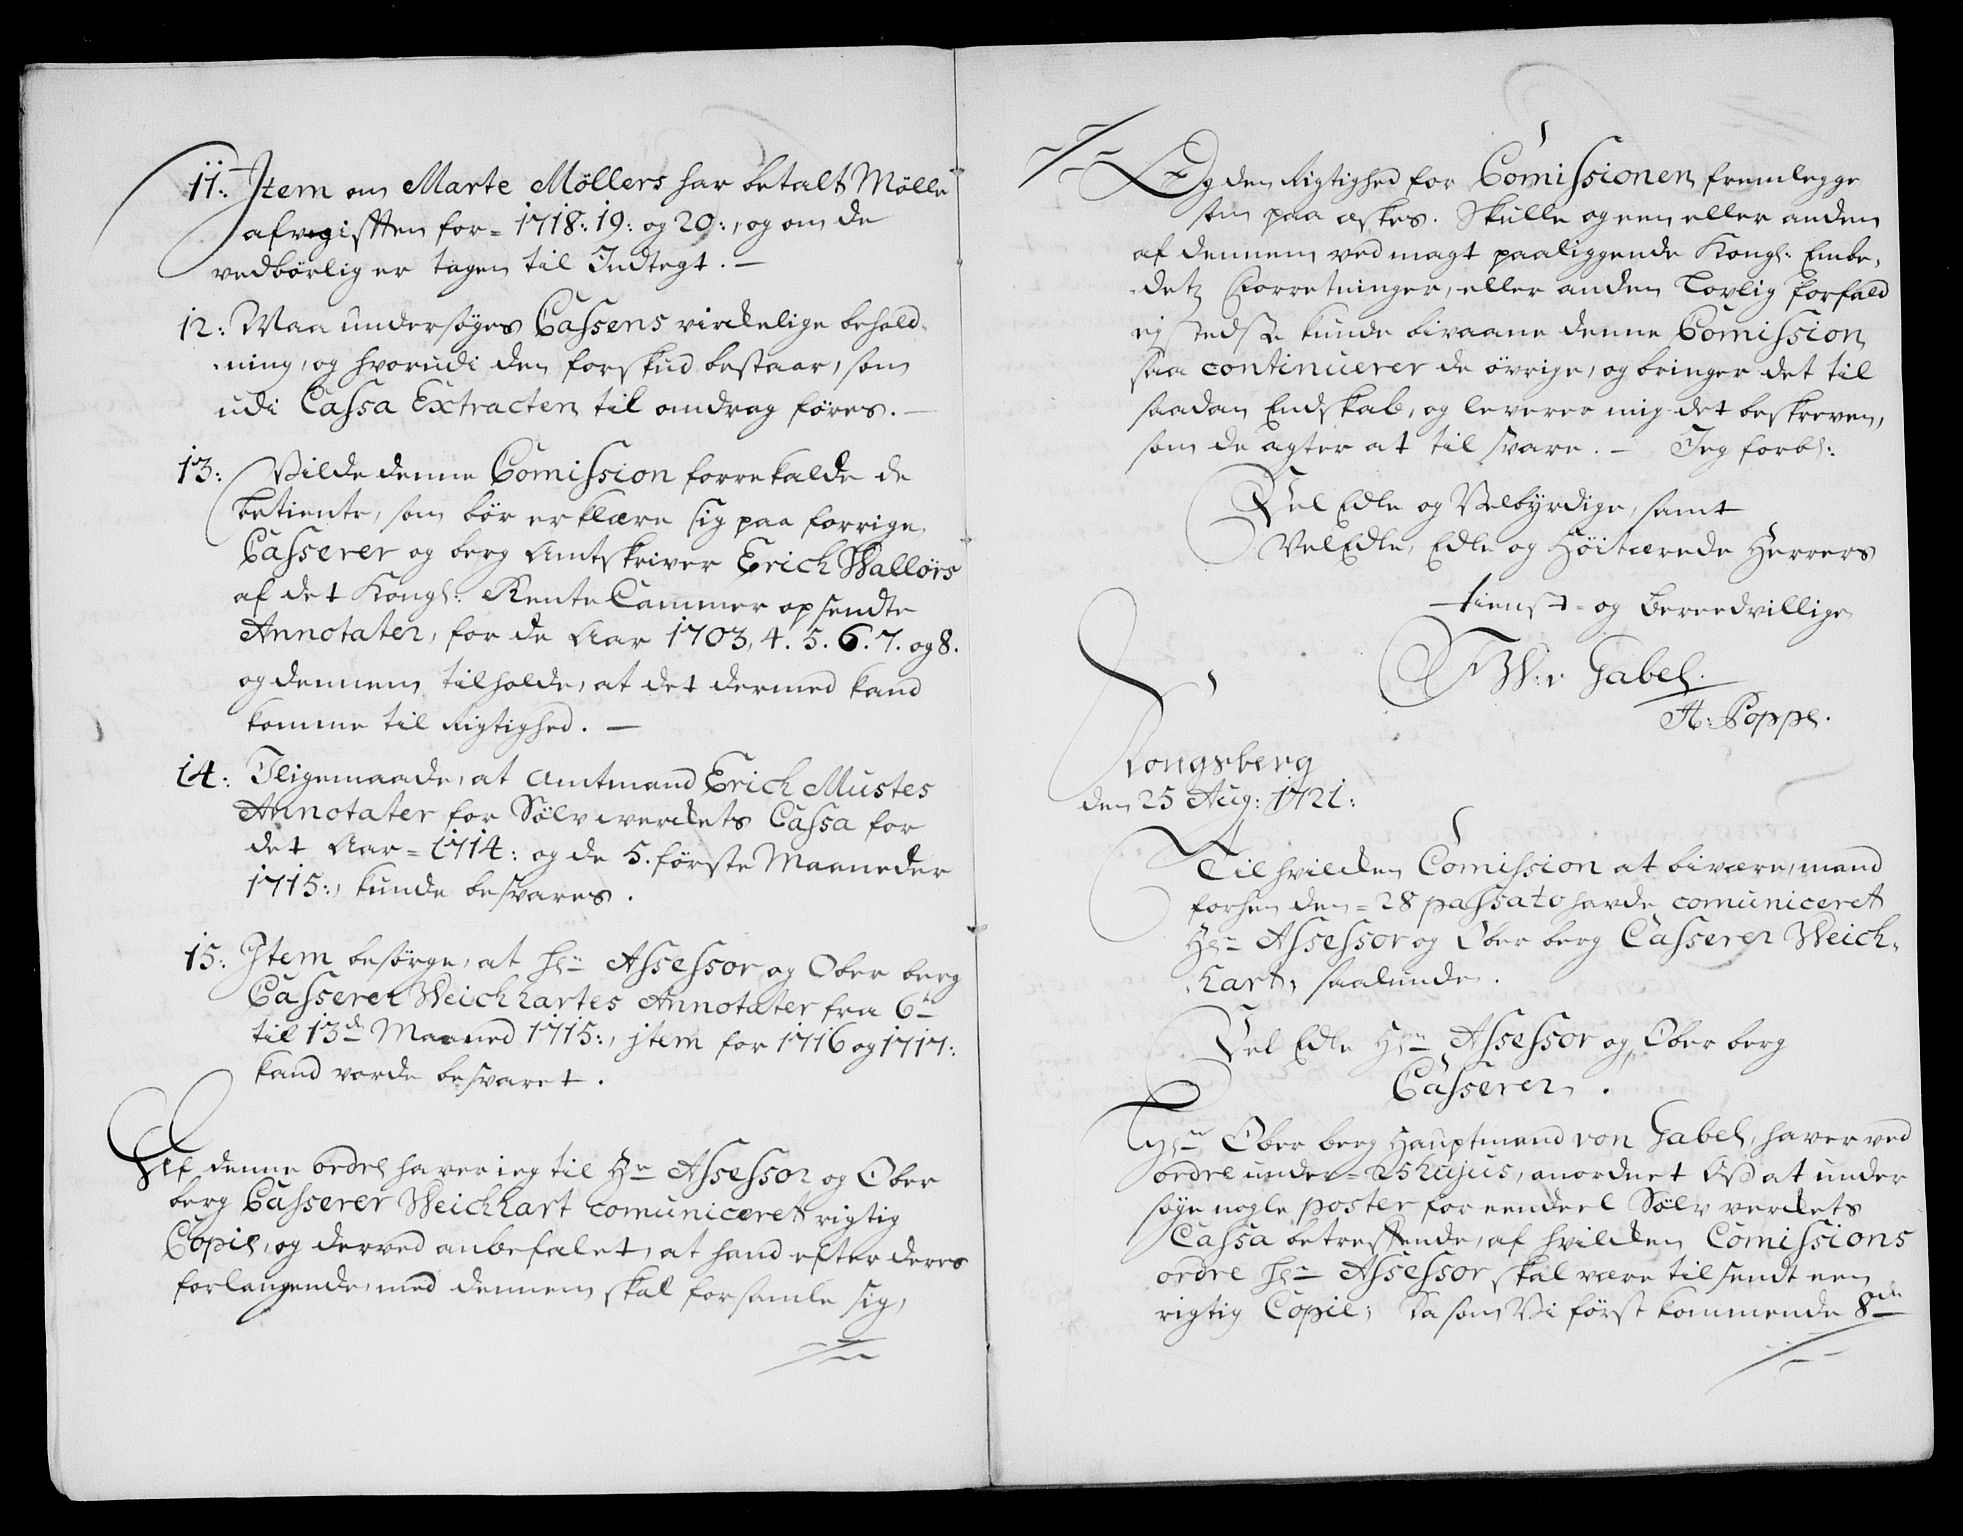 11: Jtem om Marte Möllers har betalt Mölle
afvegifften for = 1718: 19: og 20:, og om de
vedbörlig er tagen til Indtegt. —
12: Maa undersöges Cassens virckelige behold-
ning, og hvorudi den forskud bestaar, som
udi Cassa Extracten til omdrag föres. —
13: Vilde denne Comission forrekalde de
betiente, som bör erklære sig paa forrige
Casserer og berg Amtskriver Erich Wallørs
af det Kongl: Rente Cammer opsendte
Annotater, for de Aar 1703, 4. 5. 6. 7. og 8.
og dennem tilholde, at det dermed kand
komme til Rigtighed. —
14: Iligemaade, at Amtmand Erich Mustes
Annotater for Sölv werckets Cassa for
det Aar = 1714: og de 5. förste Maaneder
1715:, kunde besvares.
15: Jtem besörge, at Hr Assessor og Ober berg
Casserer Weichhartes Annotater fra 6te
til 13de Maaned 1715:, jtem for 1716 og 1717:
kand vorde besvaret.
Af denne ordre haver ieg til Hr Assessor og Ober
berg Casserer Weichhart comuniceret rigtig
Copie, og derved anbefalet, at hand efter deres
forlangende, med dennem skal forsamle sig,
Og den Rigtighed for Comissionen fremlegge
som paa æskes. Skulle og een eller anden
af dennem ved magt paaliggende Kongl: Embe-
detz Forretninger, eller anden Lovlig forfald
ej stedse kunde bivaane denne Comission
saa continuerer de övrige, og bringer det til
saadan Endskab, og leverer mig det beskreven,
som de agter at til svare. — Jeg forbl:
Vel Edle og Velbyrdige, samt
VelEdle, Edle og Höitærede Herrers
tienst- og Beredvillige
F W: v Gabel.
A: Poppe.
Kongsberg
den 25 Aug: 1721:
Til hvilcken Comission at bivære, mand
forhen den = 28 passato havde comuniceret
Hr Assessor og Ober berg Casserer Weich-
hart, saalunde.
Vel Edle Hr Assessor og Ober berg
Casserer.
Hr Ober berg Hauptmand von Gabel, haver ved
ordre under = 25 hujus, anordnet Os at under
söge nogle poster for eendeel Sölv verckets
Cassa betreffende, af hvilcken Comissions
ordre Hr Assessor skal være tilsendt een
rigtig Copie; Da som Vi först kommende 8de